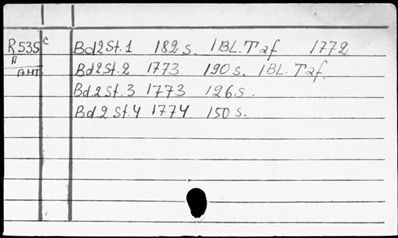 R535 c Bd2St.1 182s. 1BL.Taf 1772
A Bd2St.2 1773 190s. 1BL.Taf.
AHT Bd.2 St.3 1773 126s.
Bd.2 St.4 1774 150s.